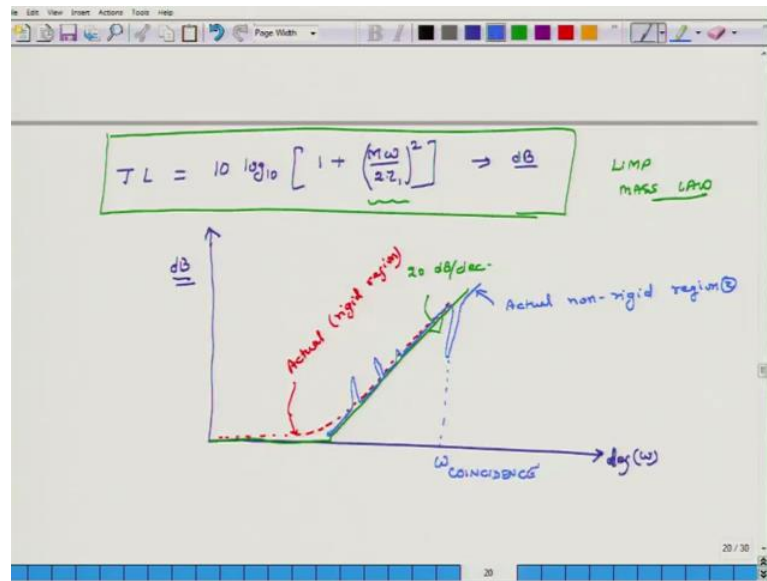 File Edit View Insert Actions Tools Help
Page Width
TL = 10 log10 [ 1 + (Mω/2Z1)^2 ] → dB
LIMP
MASS LAW
dB
Actual (rigid region)
20 dB/dec.
Actual non-rigid region ②
ω COINCIDENCE
log(ω)
20 / 30
20